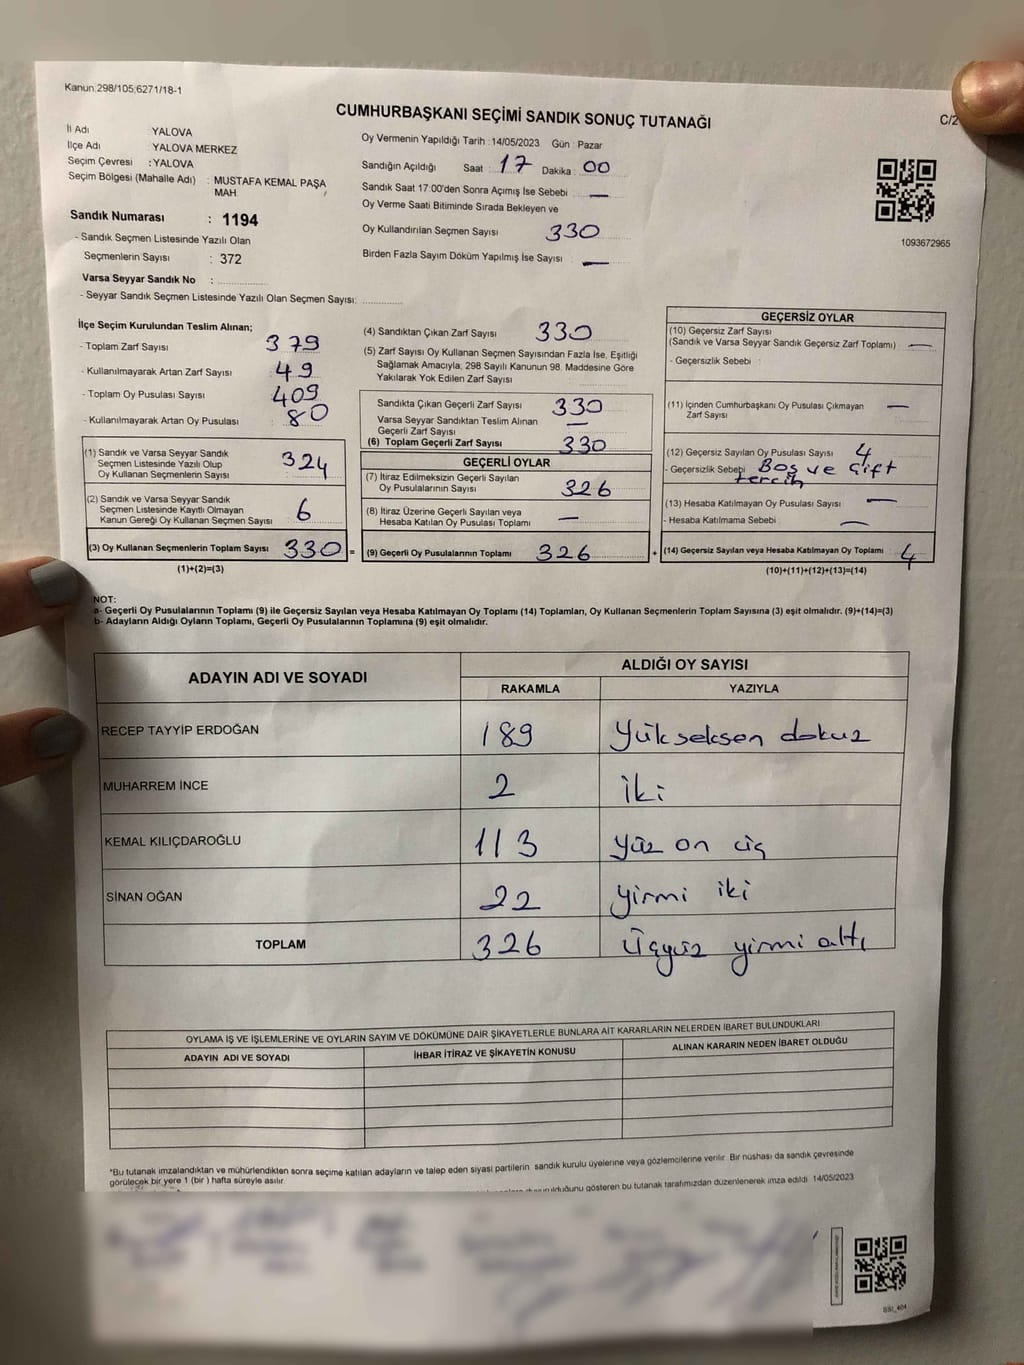 Kanun:298/105;6271/18-1
CUMHURBAŞKANI SEÇİMİ SANDIK SONUÇ TUTANAĞI
C/2
İl Adı YALOVA
İlçe Adı YALOVA MERKEZ
Seçim Çevresi :YALOVA
Seçim Bölgesi (Mahalle Adı) : MUSTAFA KEMAL PAŞA
MAH
Sandık Numarası : 1194
- Sandık Seçmen Listesinde Yazılı Olan
Seçmenlerin Sayısı : 372
Varsa Seyyar Sandık No :
- Seyyar Sandık Seçmen Listesinde Yazılı Olan Seçmen Sayısı:
Oy Vermenin Yapıldığı Tarih :14/05/2023 Gün : Pazar
Sandığın Açıldığı Saat : 17 Dakika : 00
Sandık Saat 17:00'den Sonra Açımış İse Sebebi : —
Oy Verme Saati Bitiminde Sırada Bekleyen ve
Oy Kullandırılan Seçmen Sayısı 330
Birden Fazla Sayım Döküm Yapılmış İse Sayısı : —
1093672965
İlçe Seçim Kurulundan Teslim Alınan;
- Toplam Zarf Sayısı : 379
- Kullanılmayarak Artan Zarf Sayısı : 49
- Toplam Oy Pusulası Sayısı : 409
- Kullanılmayarak Artan Oy Pusulası : 80
(1) Sandık ve Varsa Seyyar Sandık
Seçmen Listesinde Yazılı Olup
Oy Kullanan Seçmenlerin Sayısı 324
(2) Sandık ve Varsa Seyyar Sandık
Seçmen Listesinde Kayıtlı Olmayan
Kanun Gereği Oy Kullanan Seçmen Sayısı 6
(3) Oy Kullanan Seçmenlerin Toplam Sayısı 330 =
(1)+(2)=(3)
(4) Sandıktan Çıkan Zarf Sayısı 330
(5) Zarf Sayısı Oy Kullanan Seçmen Sayısından Fazla İse, Eşitliği
Sağlamak Amacıyla, 298 Sayılı Kanunun 98. Maddesine Göre
Yakılarak Yok Edilen Zarf Sayısı
Sandıkta Çıkan Geçerli Zarf Sayısı 330
Varsa Seyyar Sandıktan Teslim Alınan
Geçerli Zarf Sayısı —
(6) Toplam Geçerli Zarf Sayısı 330
GEÇERLİ OYLAR
(7) İtiraz Edilmeksizin Geçerli Sayılan
Oy Pusulalarının Sayısı 326
(8) İtiraz Üzerine Geçerli Sayılan veya
Hesaba Katılan Oy Pusulası Toplamı —
(9) Geçerli Oy Pusulalarının Toplamı 326 +
GEÇERSİZ OYLAR
(10) Geçersiz Zarf Sayısı
(Sandık ve Varsa Seyyar Sandık Geçersiz Zarf Toplamı) —
- Geçersizlik Sebebi :
(11) İçinden Cumhurbaşkanı Oy Pusulası Çıkmayan
Zarf Sayısı —
(12) Geçersiz Sayılan Oy Pusulası Sayısı 4
- Geçersizlik Sebebi Boş ve Çift
tercih
(13) Hesaba Katılmayan Oy Pusulası Sayısı —
- Hesaba Katılmama Sebebi : —
(14) Geçersiz Sayılan veya Hesaba Katılmayan Oy Toplamı 4
(10)+(11)+(12)+(13)=(14)
NOT:
a- Geçerli Oy Pusulalarının Toplamı (9) ile Geçersiz Sayılan veya Hesaba Katılmayan Oy Toplamı (14) Toplamları, Oy Kullanan Seçmenlerin Toplam Sayısına (3) eşit olmalıdır. (9)+(14)=(3)
b- Adayların Aldığı Oyların Toplamı, Geçerli Oy Pusulalarının Toplamına (9) eşit olmalıdır.
ADAYIN ADI VE SOYADI ALDIĞI OY SAYISI
RAKAMLA YAZIYLA
RECEP TAYYİP ERDOĞAN 189 Yükseksen dokuz
MUHARREM İNCE 2 İki
KEMAL KILIÇDAROĞLU 113 Yüz on üç
SİNAN OĞAN 22 Yirmi iki
TOPLAM 326 Üçyüz yirmi altı
OYLAMA İŞ VE İŞLEMLERİNE VE OYLARIN SAYIM VE DÖKÜMÜNE DAİR ŞİKAYETLERLE BUNLARA AİT KARARLARIN NELERDEN İBARET BULUNDUKLARI
ADAYIN ADI VE SOYADI İHBAR İTİRAZ VE ŞİKAYETİN KONUSU ALINAN KARARIN NEDEN İBARET OLDUĞU
*Bu tutanak imzalandıktan ve mühürlendikten sonra seçime katılan adayların ve talep eden siyasi partilerin sandık kurulu üyelerine veya gözlemcilerine verilir. Bir nüshası da sandık çevresinde
görülecek bir yere 1 (bir ) hafta süreyle asılır.
gösteren bu tutanak tarafımızdan düzenlenerek imza edildi. 14/05/2023